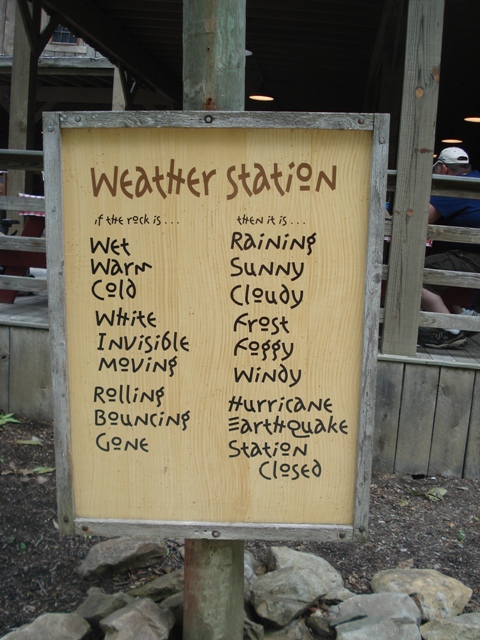 Weather Station
if the rock is . . . then it is . . .
Wet Raining
Warm Sunny
Cold Cloudy
White Frost
Invisible Foggy
Moving Windy
Rolling Hurricane
Bouncing Earthquake
Gone Station
Closed